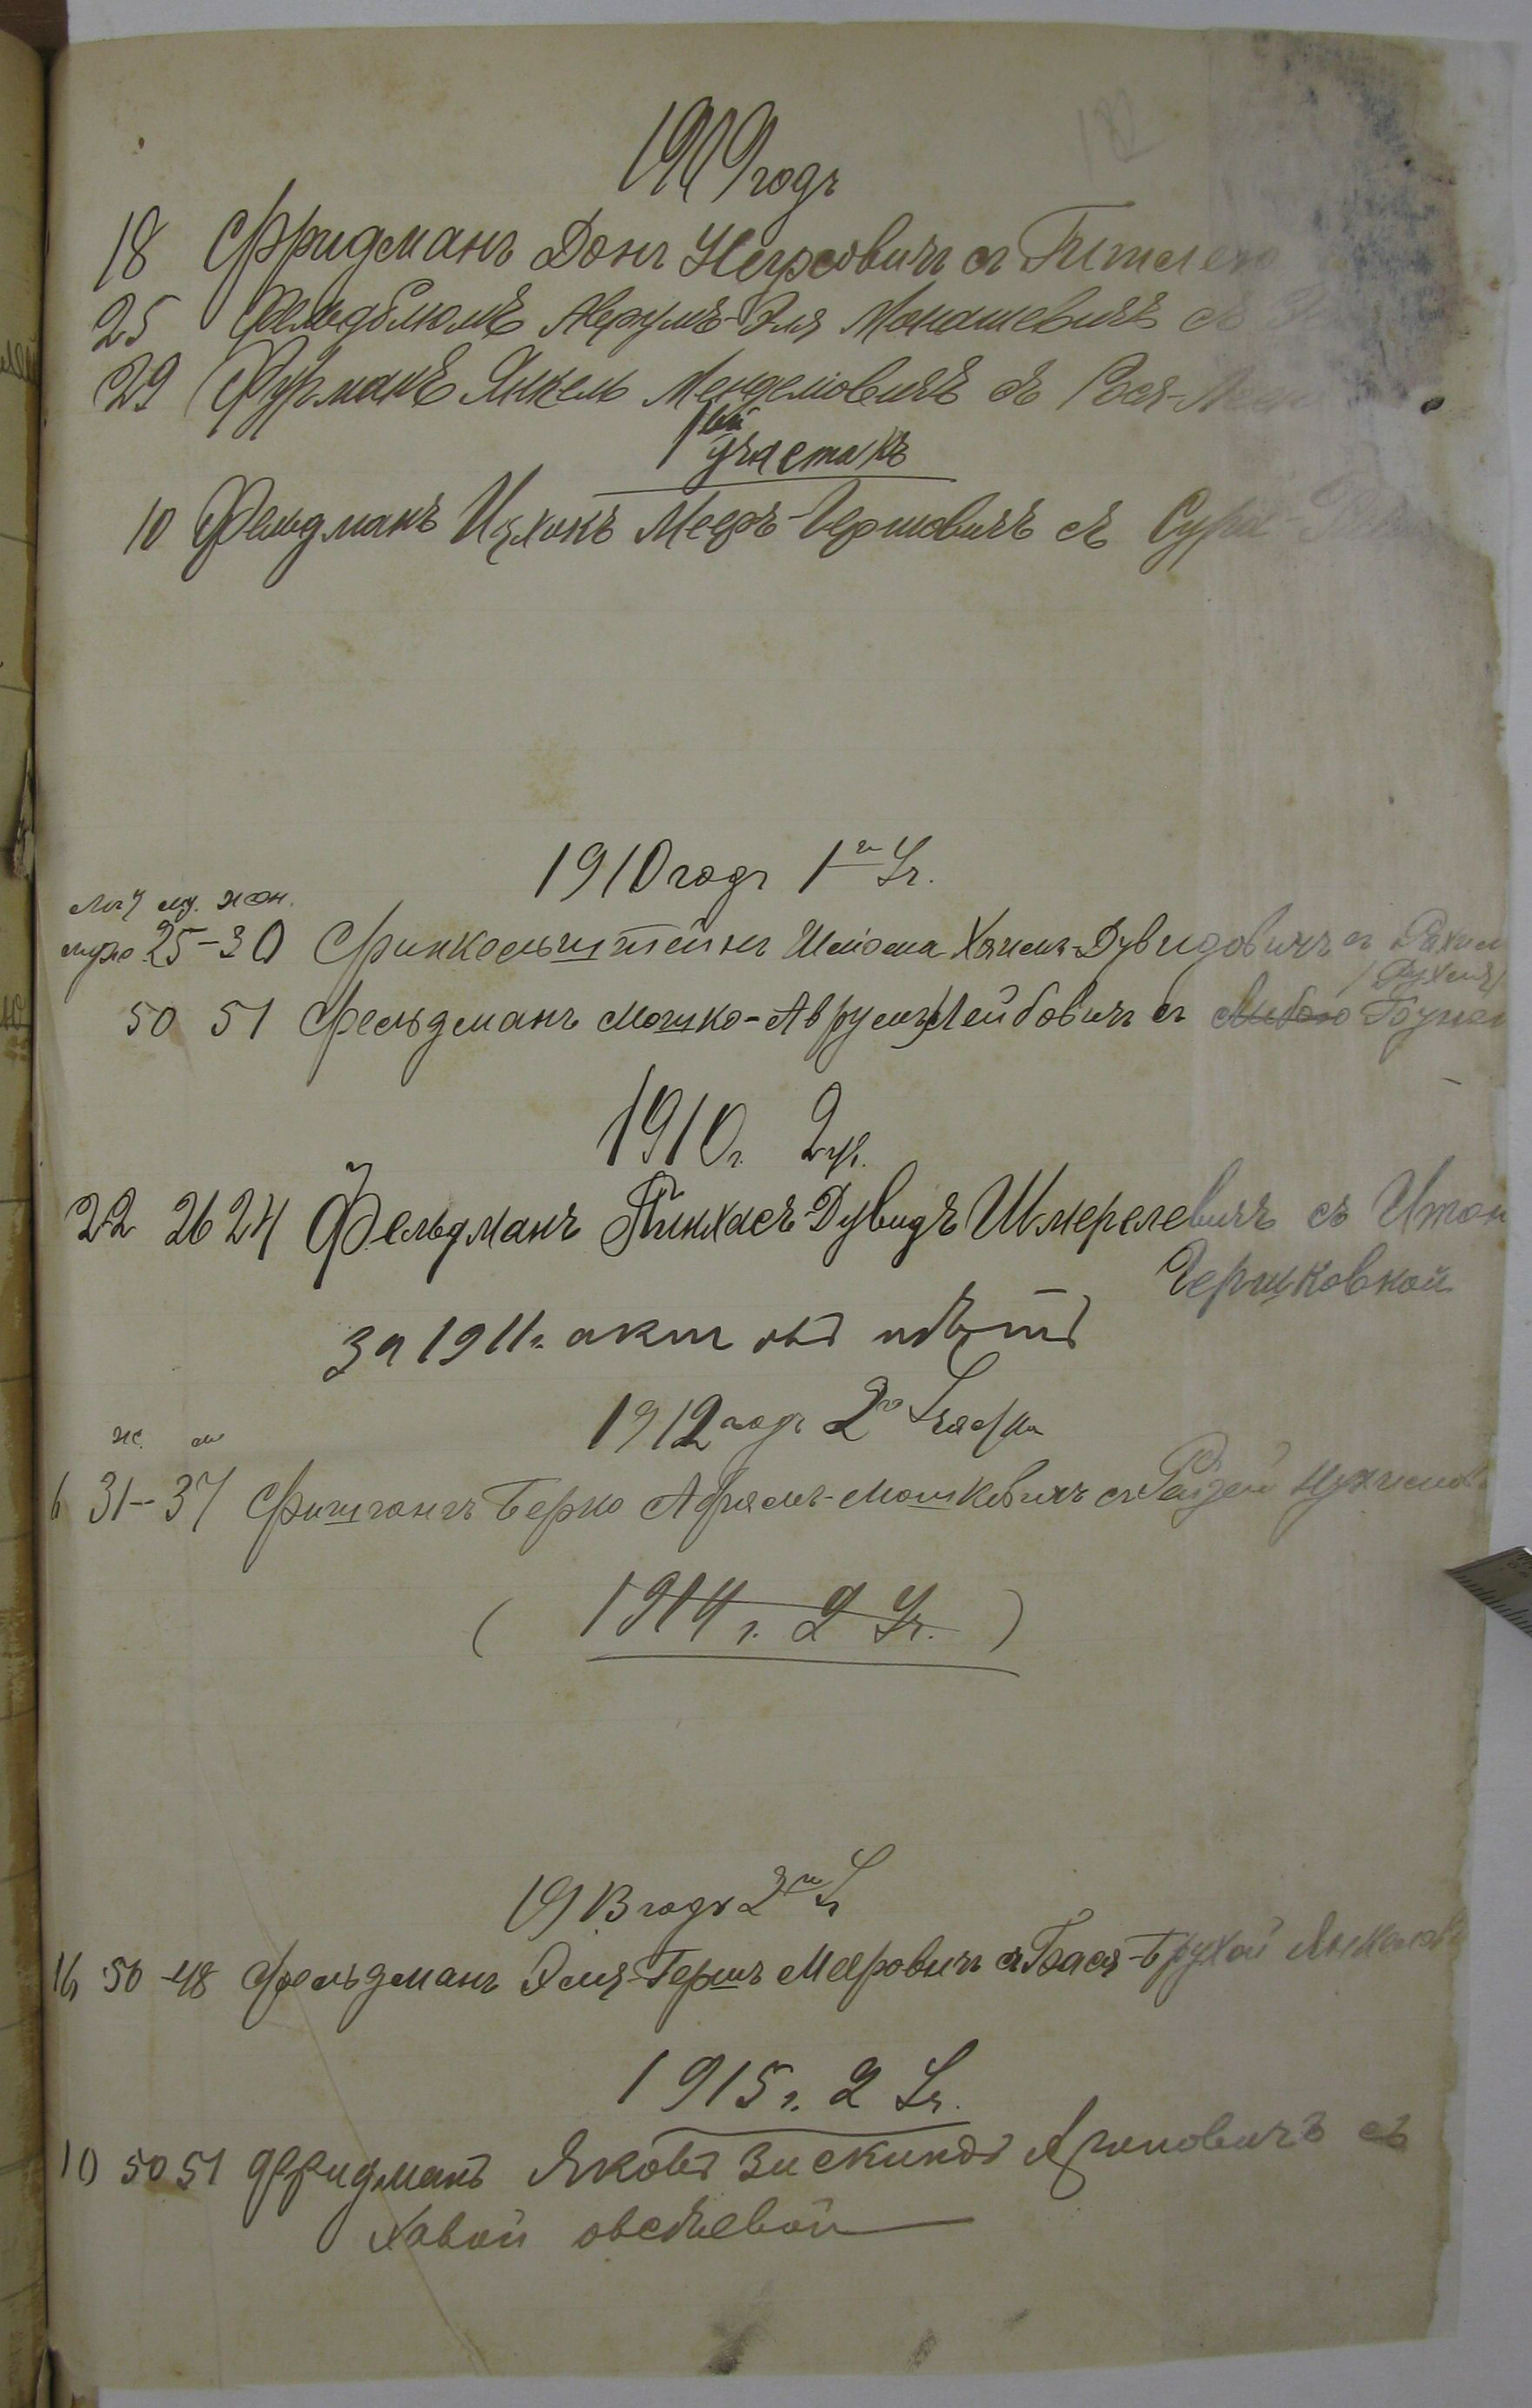 1909 годъ
18 Фридманъ Донъ Нерсовичъ съ Гителею
25 Фельдблюмъ Аврумъ-Эля Монашевичъ съ
29 Фурманъ Янкель Менделiовичъ съ Рося-
1ый участокъ
10 Фельдманъ Ицхокъ Мееръ-Гершовичъ съ Сура
1910 годъ 1й Уч.
муж. жен.
25-30 Финкельштейнъ Шлiома Хаимъ-Дувидовичъ съ Рахил
/Рухля/
50 51 Фельдманъ Мошко-Аврумъ Лейбовичъ съ Либою
1910 г. 2 уч.
22 26 24 Фельдманъ Пинхасъ-Дувидъ Шмерелевичъ съ Итою
Гершковной
За 1911 г. актовъ нѣтъ
1912 годъ 2й Участка
ж. м
6 31-37 Фишгангъ Берко Абрамъ-Мошковичъ съ Рейзей
( 1914 г. 2 Уч. )
1913 годъ 2й Уч
16 50-48 Фельдманъ Эля-Гершъ Меровичъ съ Бася-Брухой
1915 г. 2 Уч.
10 50 51 Фридманъ Яковъ Зискиндъ Ароновичъ съ
Хавой Овсѣевой